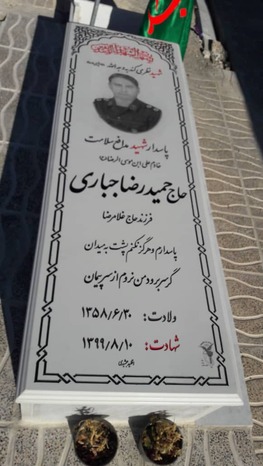 شهید نظر می کند به وجه الله
پاسدار شهید مدافع سلامت
خادم علی ابن موسی الرضا (ع)
حاج حمید رضا جباری
فرزند حاج غلامرضا
پاسدارم و هرگز نکنم پشت به میدان
گر سر برود من نروم از سر پیمان
ولادت: ۱۳۵۸/۶/۳۰
شهادت: ۱۳۹۹/۸/۱۰